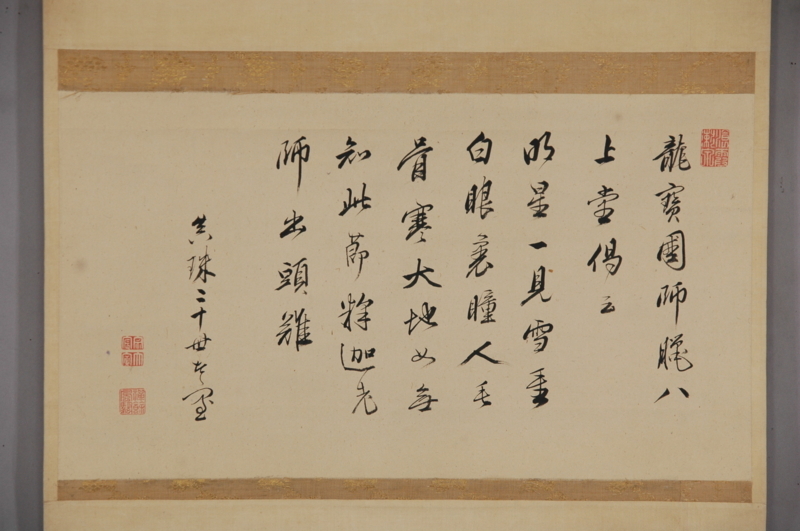 龍寶國師臘八
上堂偈云
明星一見雪重
白眼裏瞳人毛
骨寒大地如無
知此節釋迦老
師出頭難
真珠二十世大室